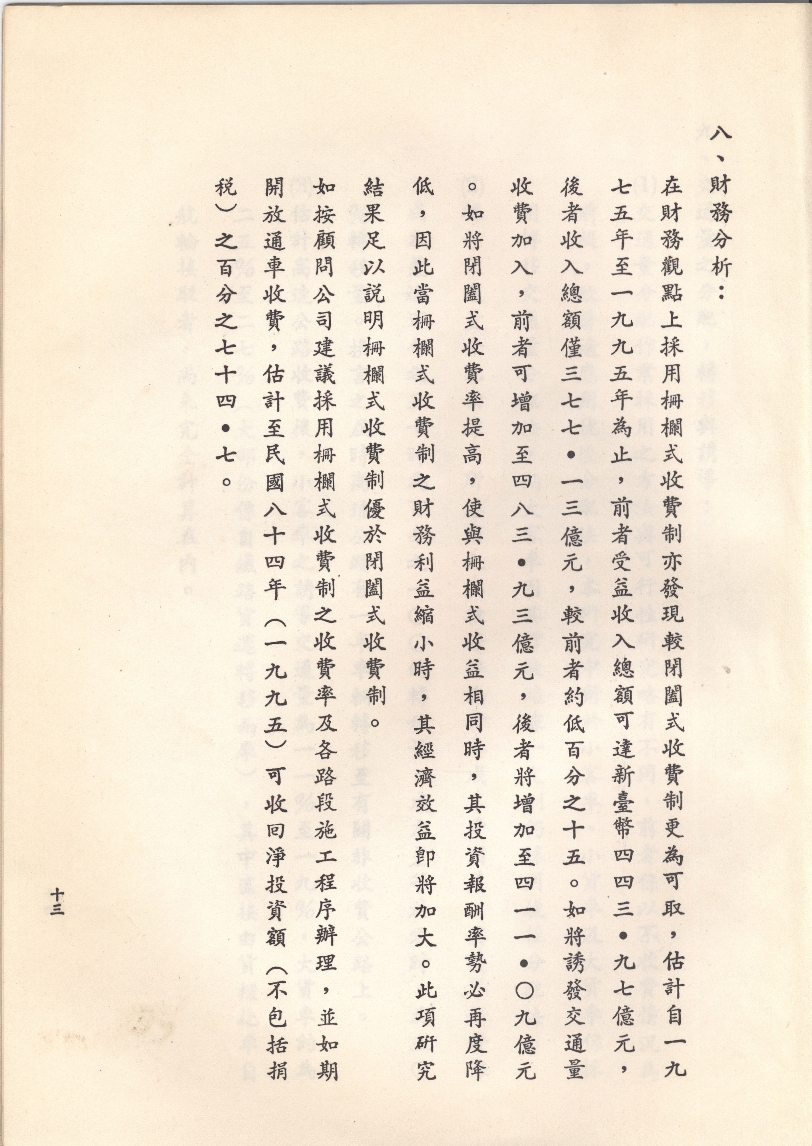 八、財務分析：
在財務觀點上採用柵欄式收費制亦發現較閉闔式收費制更為可取，估計自一九
七五年至一九九五年為止，前者受益收入總額可達新臺幣四四三•九七億元，
後者收入總額僅三七七•一三億元，較前者約低百分之十五。如將誘發交通量
收費加入，前者可增加至四八三•九三億元，後者將增加至四一一•〇九億元
。如將閉闔式收費率提高，使與柵欄式收益相同時，其投資報酬率勢必再度降
低，因此當柵欄式收費制之財務利益縮小時，其經濟效益卽將加大。此項研究
結果足以說明柵欄式收費制優於閉闔式收費制。
如按顧問公司建議採用柵欄式收費制之收費率及各路段施工程序辦理，並如期
開放通車收費，估計至民國八十四年（一九九五）可收回淨投資額（不包括捐
稅）之百分之七十四•七。
十三